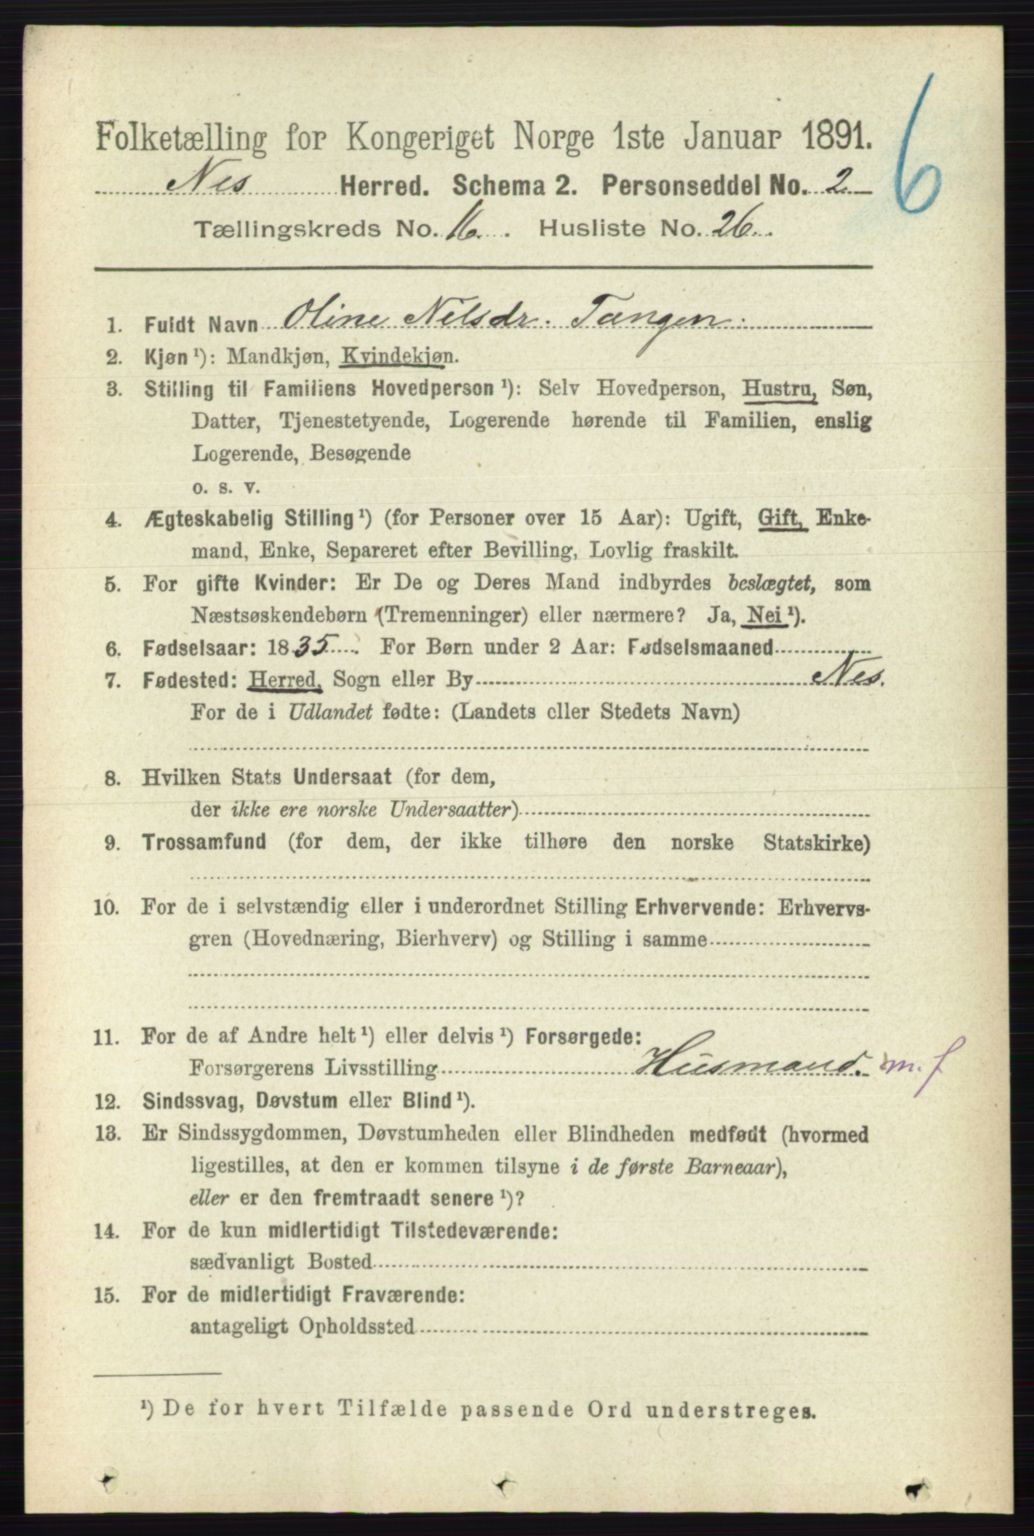 6
Folketælling for Kongeriget Norge 1ste Januar 1891.
Nes Herred. Schema 2. Personseddel No. 2
Tællingskreds No. 16. Husliste No. 26.
1. Fuldt Navn Oline Nilsdr. Tangen.
2. Kjøn ¹): Mandkjøn, Kvindekjøn.
3. Stilling til Familiens Hovedperson ¹): Selv Hovedperson, Hustru, Søn,
Datter, Tjenestetyende, Logerende hørende til Familien, enslig
Logerende, Besøgende
o. s. v.
4. Ægteskabelig Stilling ¹) (for Personer over 15 Aar): Ugift, Gift, Enke-
mand, Enke, Separeret efter Bevilling, Lovlig fraskilt.
5. For gifte Kvinder: Er De og Deres Mand indbyrdes beslægtet, som
Næstsøskendebørn (Tremenninger) eller nærmere? Ja, Nei ¹).
6. Fødselsaar: 1835. For Børn under 2 Aar: Fødselsmaaned
7. Fødested: Herred, Sogn eller By Nes.
For de i Udlandet fødte: (Landets eller Stedets Navn)
8. Hvilken Stats Undersaat (for dem,
der ikke ere norske Undersaatter)
9. Trossamfund (for dem, der ikke tilhøre den norske Statskirke)
10. For de i selvstændig eller i underordnet Stilling Erhvervende: Erhvervs-
gren (Hovednæring, Bierhverv) og Stilling i samme
11. For de af Andre helt ¹) eller delvis ¹) Forsørgede:
Forsørgerens Livsstilling Husmand. m. f
12. Sindssvag, Døvstum eller Blind ¹).
13. Er Sindssygdommen, Døvstumheden eller Blindheden medfødt (hvormed
ligestilles, at den er kommen tilsyne i de første Barneaar),
eller er den fremtraadt senere ¹)?
14. For de kun midlertidigt Tilstedeværende:
sædvanligt Bosted
15. For de midlertidigt Fraværende:
antageligt Opholdssted
¹) De for hvert Tilfælde passende Ord understreges.